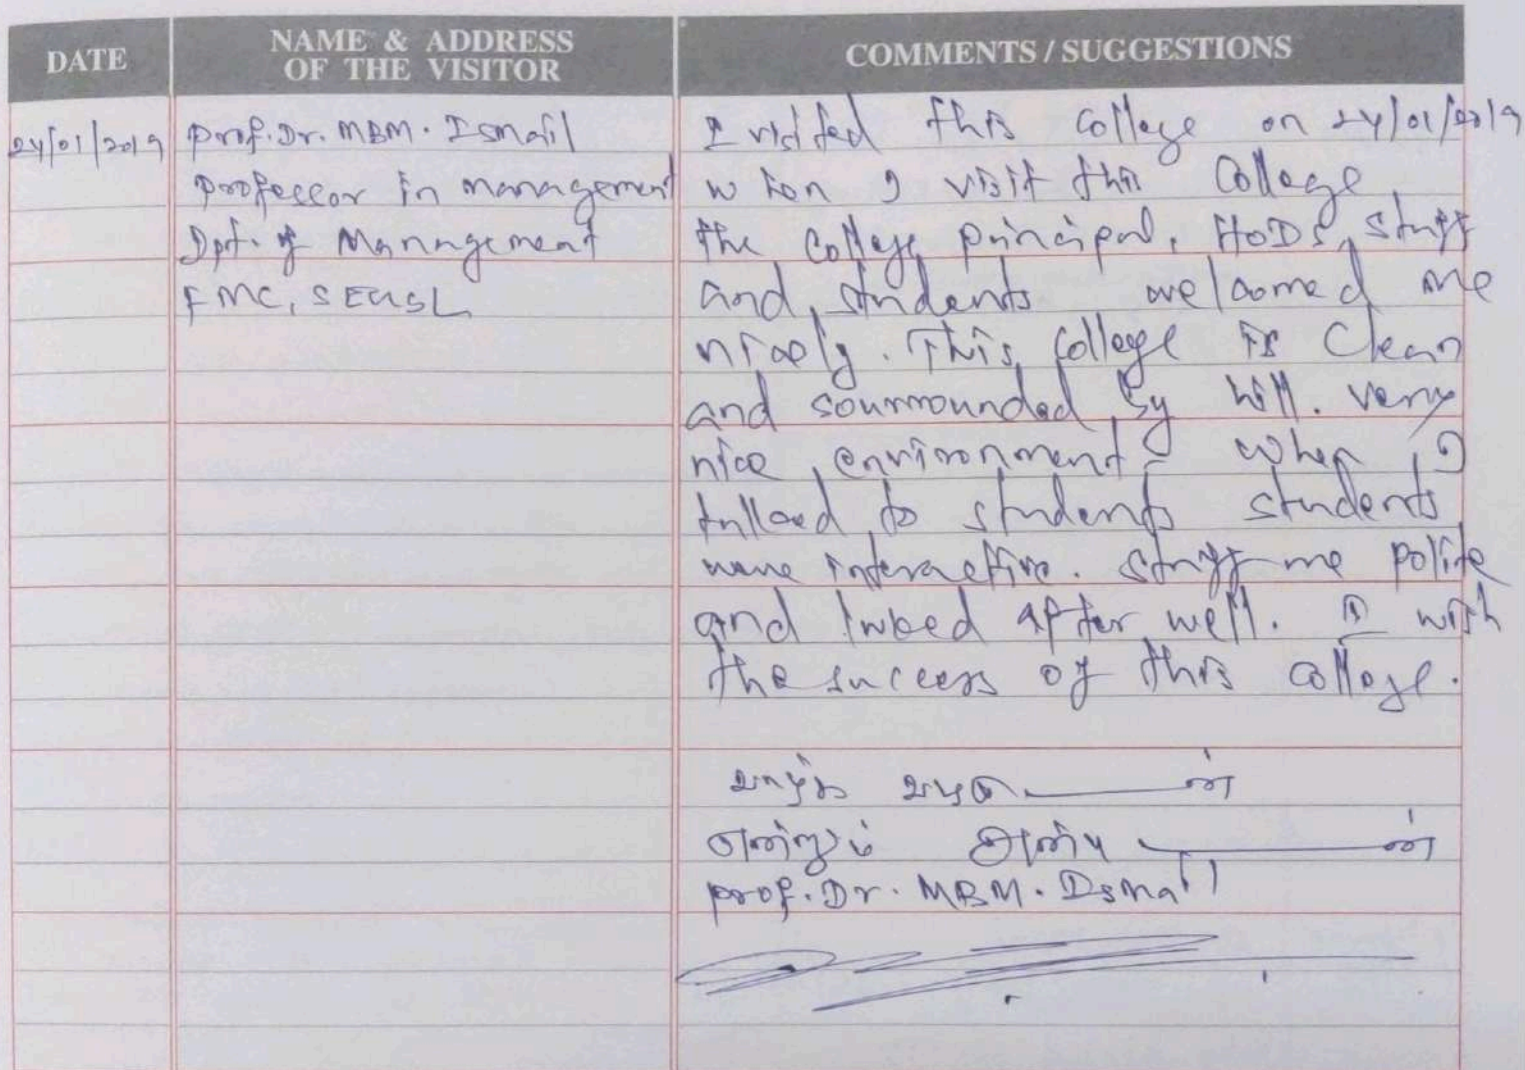 DATE
NAME & ADDRESS
OF THE VISITOR
COMMENTS / SUGGESTIONS
24/01/2019
Prof. Dr. MBM. Ismail
Professor in management
Dpt. of Management
FMC, SEUSL
I visited this College on 24/01/2019
when I visit this College
the College principal, HODs, staff
and students welcomed me
nicely. This College is Clean
and sourrounded by hill. very
nice environment when I
talked to students students
were interactive. staff are polite
and looked after well. I wish
the success of this College.
வாழ்க
என்றும் அன்பு ன்
Prof. Dr. MBM. Ismail